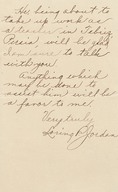 He being about to
take up work as
a teacher in Tabriz
Persia, will be glad
to talk
with you.
Anything which
may be done to
assist him will be
a favor to me.
Very truly
Loring B. Jordan